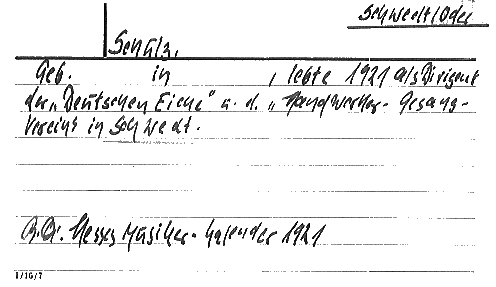 Schwedt/Oder
Schulz,
Geb. in , lebte 1921 als Dirigent
der „Deutschen Eiche" u. d. „Handwerker-Gesang-
Vereins in Schwedt.
Hesses Musiker-Kalender 1921
1/16/7